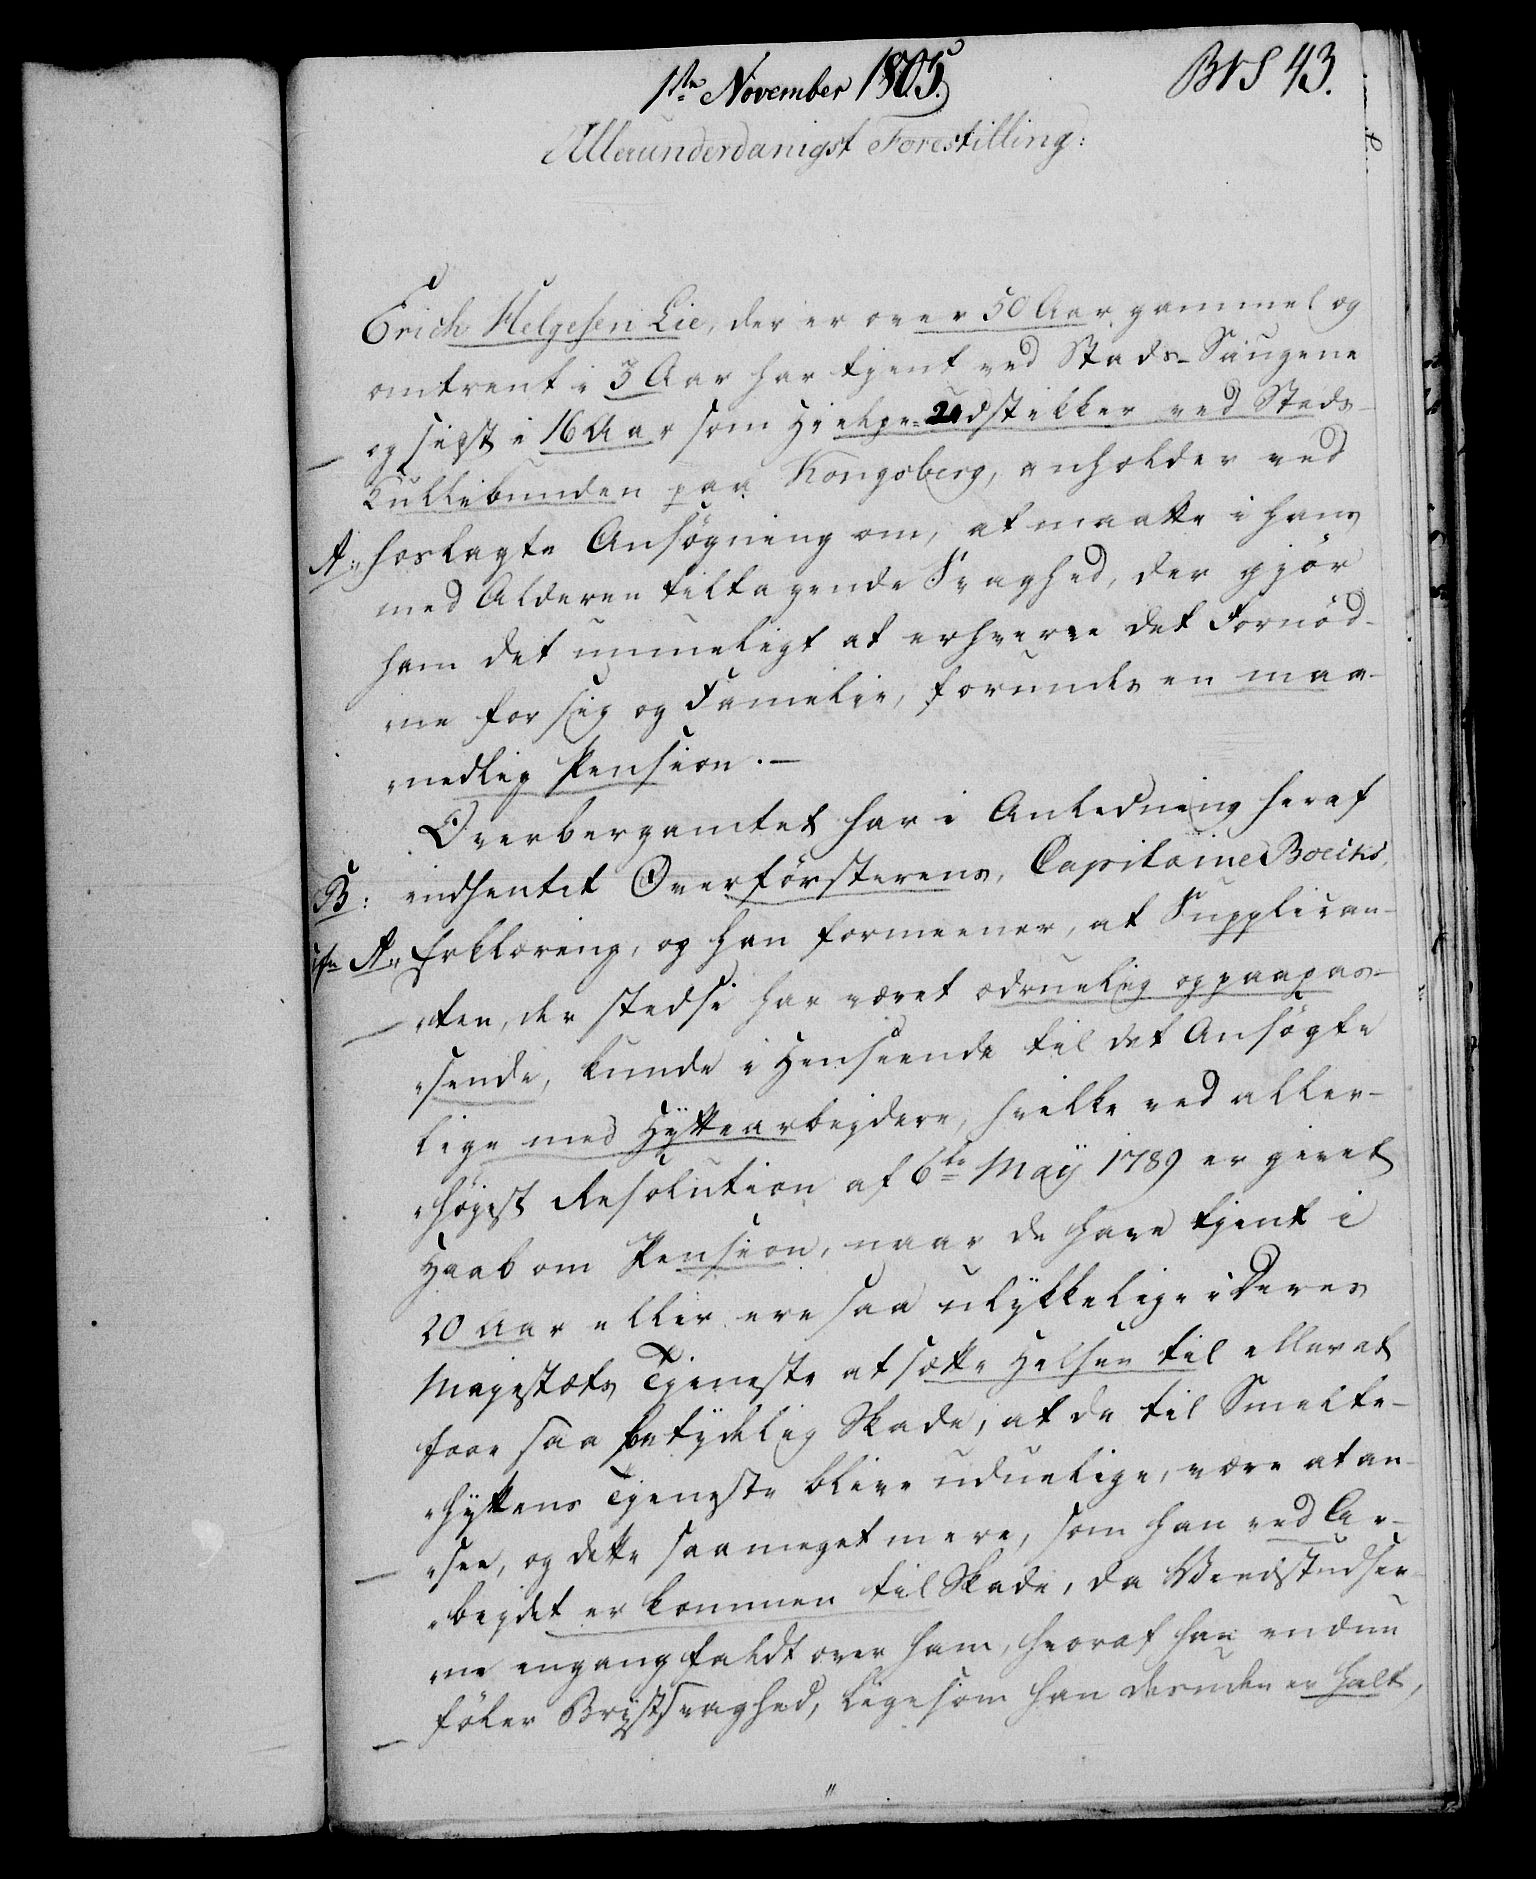 1ste November 1805.
BVS 43.
Allerunderdanigst Forestilling:
Erich Helgesen Lie, der er over 50 Aar gammel og
omtrent i 3 Aar har tjent ved Stads-Saugene
og sidst i 16 Aar som Hielpe-Udstikker ved Stads-
Kullebunden paa Kongsberg, anholder ved
A: hoslagte Ansøgning om, at maatte i hans
med Alderen tiltagende Svaghed, der gjør
ham det umueligt at erhverve det Fornød-
ne for sig og Familie, forundes en maa-
nedlig Pension.-
Overbergamtet har i Anledning heraf
B: indhentet Overførsterens, Capitaine Boeiks
A: Erklæring, og han formeener, at Supplican-
ten, der stedse har været ædruelig og paapas-
sende, kunde i Henseende til det Ansøgte
lige med Hyttearbejdere, hvilke ved aller-
høyst Resolution af 6te Maÿ 1789 er givet
Haab om Pension, naar de have tjent i
20 Aar eller ere saa ulykkelige i Deres
Majestæts Tjeneste at sætte Helsen til eller at
faae saa betydelig Skade, at de til Smelte-
hyttens Tjeneste blive uduelige, være at an-
see, og dette saameget mere, som han ved Ar-
bejdet er kommen til Skade, da Veedstudser-
ne engang faldt over ham, hvoraf han endnu
føler Brystsvaghed, ligesom han desuden er halt,
"